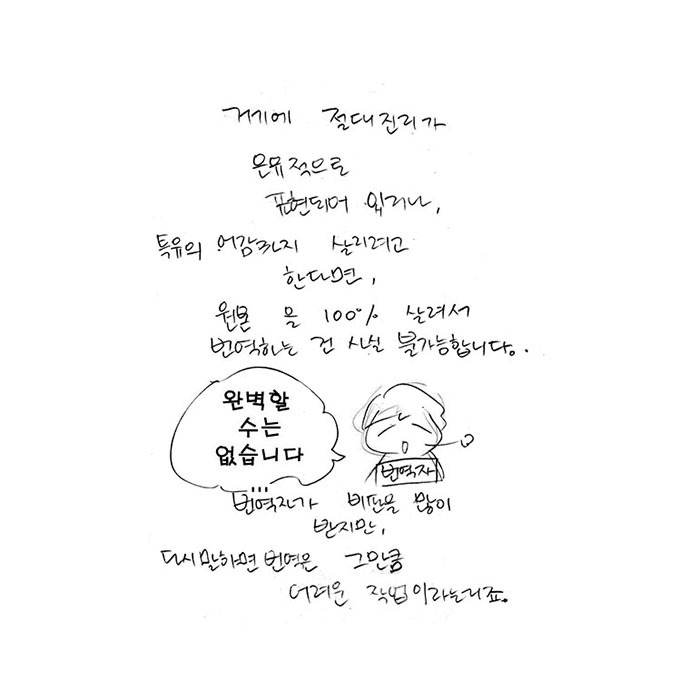 거기에 절대진리가
은유적으로
표현되어 있거나,
특유의 어감까지 살리려고
한다면,
원본 을 100% 살려서
번역하는 건 사실 불가능합니다.
완벽할
수는
없습니다
...
번역자
번역자가 비판을 많이
받지만,
다시말하면 번역은 그만큼
어려운 작업이라는거죠.